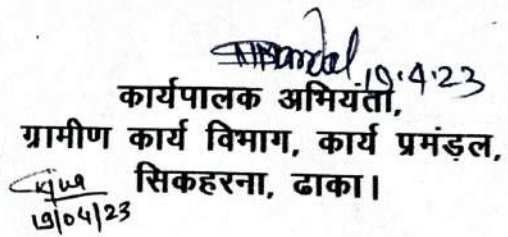 19.4.23
कार्यपालक अभियंता,
ग्रामीण कार्य विभाग, कार्य प्रमंडल,
सिकहरना, ढाका।
19/04/23